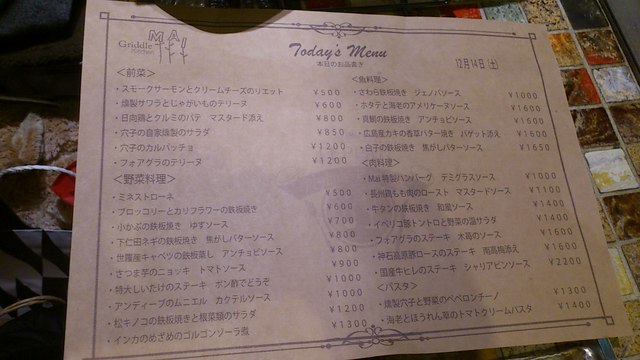 Griddle MAI
Kitchen
Today's Menu
本日のお品書き
12月14日(土)
<前菜>
・スモークサーモンとクリームチーズのリエット ¥500
・燻製サワラとじゃがいものテリーヌ ¥600
・日向鶏とクルミのパテ マスタード添え ¥800
・穴子の自家燻製のサラダ ¥850
・穴子のカルパッチョ ¥1200
・フォアグラのテリーヌ ¥1200
<野菜料理>
・ミネストローネ ¥500
・ブロッコリーとカリフラワーの鉄板焼き ¥600
・小かぶの鉄板焼き ゆずソース ¥700
・下仁田ネギの鉄板焼き 焦がしバターソース ¥800
・世羅産キャベツの鉄板蒸し アンチョビソース ¥800
・さつま芋のニョッキ トマトソース ¥900
・特大しいたけのステーキ ポン酢でどうぞ ¥1000
・アンディーブのムニエル カクテルソース ¥1000
・松キノコの鉄板焼きと根菜類のサラダ ¥1200
・インカのめざめのゴルゴンソーラ煮 ¥1300
<魚料理>
・さわら鉄板焼き ジェノバソース ¥1000
・ホタテと海老のアメリケーヌソース ¥1600
・真鯛の鉄板焼き アンチョビソース ¥1600
・広島産カキの香草バター焼き バゲット添え ¥1600
・白子の鉄板焼き 焦がしバターソース ¥1650
<肉料理>
・Mai特製ハンバーグ デミグラスソース ¥1000
・長州鶏もも肉のロースト マスタードソース ¥1100
・牛タンの鉄板焼き 和風ソース ¥1400
・イベリコ豚トントロと野菜の温サラダ ¥1400
・フォアグラのステーキ 木苺のソース ¥1600
・神石高原豚ロースのステーキ 南高梅添え ¥1600
・国産牛ヒレのステーキ シャリアピンソース ¥2200
<パスタ>
・燻製穴子と野菜のペペロンチーノ ¥1300
・海老とほうれん草のトマトクリームパスタ ¥1400